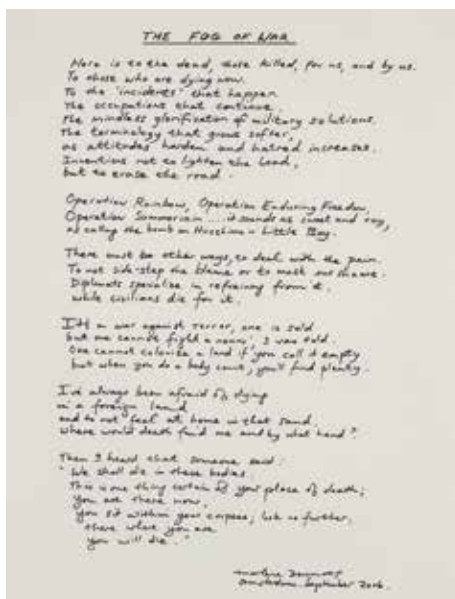 THE FOG OF WAR
Here is to the dead, those killed, for us, and by us.
To those who are dying now.
To the "incidents" that happen.
The occupations that continue.
The mindless glorification of military solutions.
The terminology that grows softer,
as attitudes harden and hatred increases.
Inventions not to lighten the load,
but to erase the road.
Operation Rainbow, Operation Enduring Freedom,
Operation Summerrain ... it sounds as sweet and
as calling the bomb on Hiroshima – Little Boy.
There must be other ways, to deal with the pain.
To not side-step the blame or to mask our shame.
Diplomats specialize in refraining from it.
while civilians die for it.
It's a war against terror, one is told
but one cannot fight a noun, I was told.
One cannot colonize a land if you call it empty
but when you do a body count, you'll find plenty.
I've always been afraid of dying
in a foreign land
and to not feel at home in that sand.
Where would death find me and by what hand?
Then I heard that someone said:
"We shall die in these bodies.
This is one thing certain of your place of death;
you are there now,
you sit within your corpse; look no further.
there where you are
you will die."
Marlene Dumas
Amsterdam September 2006